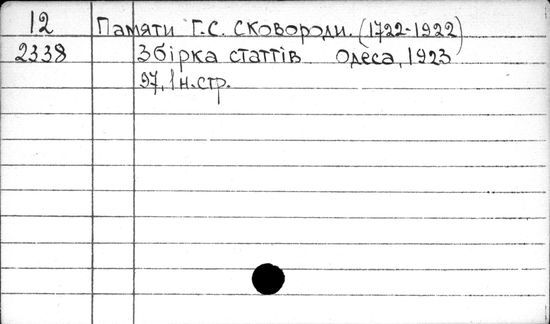 12 Памяти Г.С. Сковороди. (1722-1922)
2338 Збірка статтів Одеса, 1923
97, 1 н.стр.